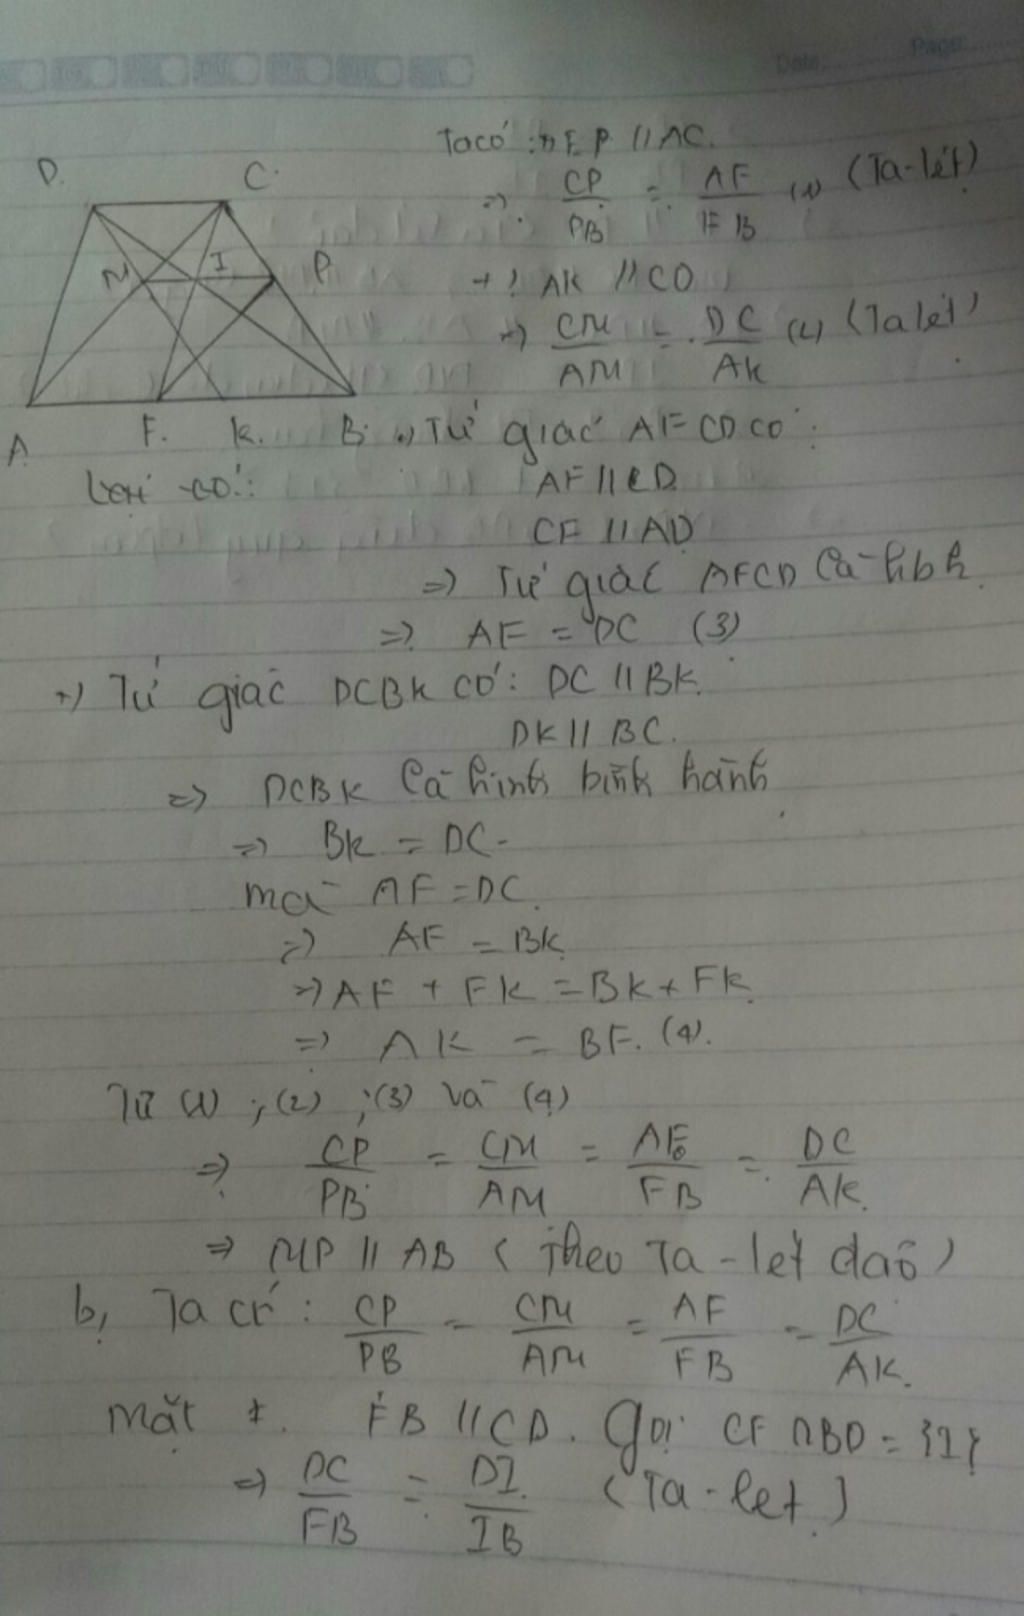 Date:
Page:
Ta có: +) FP // AC.
D. C.
=> CP/PB = AF/FB (1) (Ta-lét)
M I P
+) AK // CD
=> CM/AM = DC/AK (2) (Ta lét)
A F. K. B. +) Tứ giác AFCD có:
Lại có:
AF // CD
CF // AD
=> Tứ giác AFCD là hbh
=> AF = DC (3)
+) Tứ giác DCBK có: DC // BK.
DK // BC.
=> DCBK là hình bình hành
=> BK = DC.
mà AF = DC.
=> AF = BK
=> AF + FK = BK + FK
=> AK = BF. (4).
Từ (1); (2); (3) và (4)
=> CP/PB = CM/AM = AF/FB = DC/AK.
=> MP // AB (Theo Ta-lét đảo)
b, Ta có: CP/PB = CM/AM = AF/FB = DC/AK.
Mặt ≠. FB // CD. Gọi CF ∩ BD = {I}
=> DC/FB = DI/IB (Ta-let)